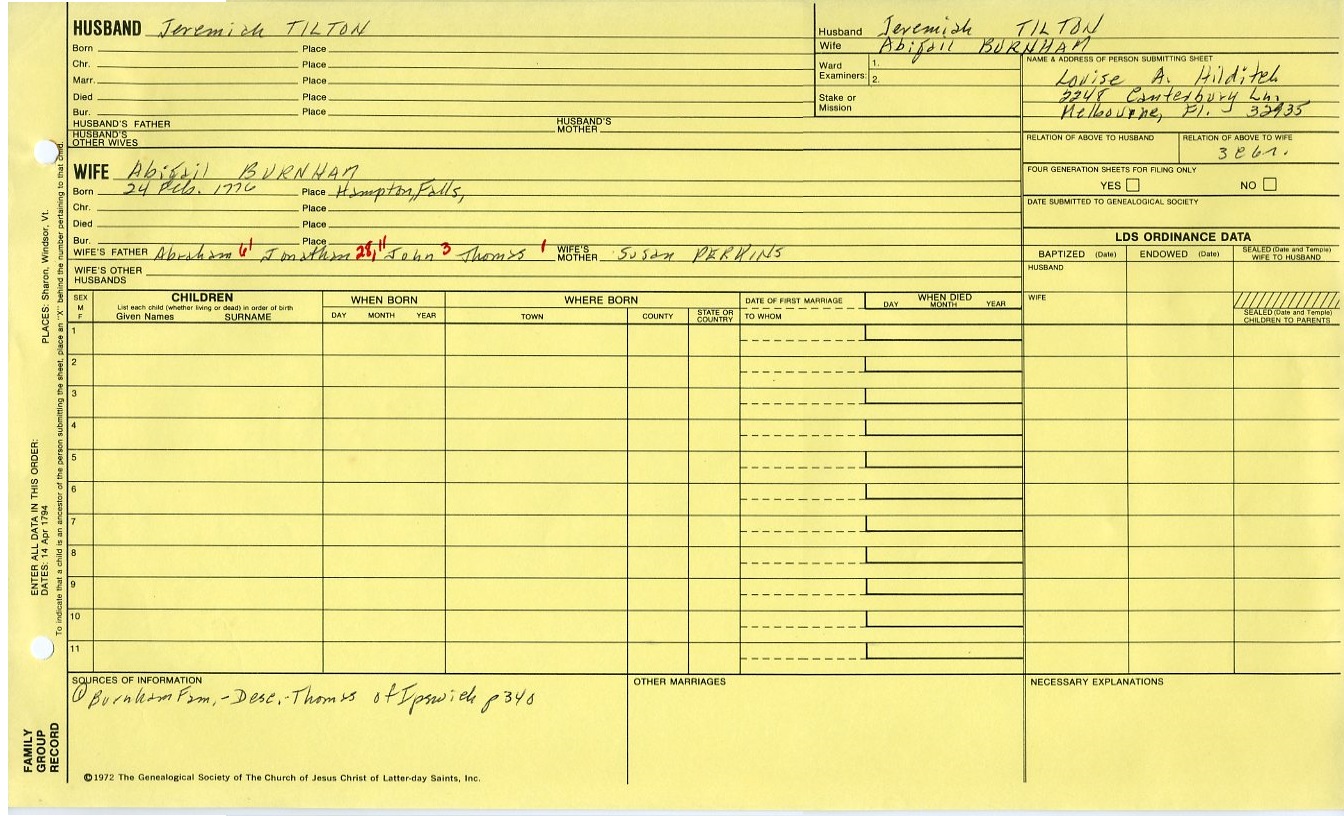 HUSBAND Jeremiah TILTON
Born Place
Chr. Place
Marr. Place
Died Place
Bur. Place
HUSBAND'S FATHER HUSBAND'S MOTHER
HUSBAND'S OTHER WIVES
Husband Jeremiah TILTON
Wife Abigail BURNHAM
Ward Examiners: 1.
2.
Stake or Mission
NAME & ADDRESS OF PERSON SUBMITTING SHEET
Louise A. Hilditch
2248 Canterbury Ln.
Melbourne, Fl. 32935
RELATION OF ABOVE TO HUSBAND RELATION OF ABOVE TO WIFE
FOUR GENERATION SHEETS FOR FILING ONLY
YES NO
DATE SUBMITTED TO GENEALOGICAL SOCIETY
WIFE Abigail BURNHAM
Born 24 Feb. 1776 Place Hampton Falls,
Chr. Place
Died Place
Bur. Place
WIFE'S FATHER Abraham 6 Jonathan 28, 11 John 3 Thomas 1 WIFE'S MOTHER Susan PERKINS
WIFE'S OTHER HUSBANDS
LDS ORDINANCE DATA
BAPTIZED (Date) ENDOWED (Date) SEALED (Date and Temple) WIFE TO HUSBAND
HUSBAND
WIFE
SEALED (Date and Temple) CHILDREN TO PARENTS
SEX M F
CHILDREN
List each child (whether living or dead) in order of birth
Given Names SURNAME
WHEN BORN
DAY MONTH YEAR
WHERE BORN
TOWN COUNTY STATE OR COUNTRY
DATE OF FIRST MARRIAGE
TO WHOM
WHEN DIED
DAY MONTH YEAR
1
2
3
4
5
6
7
8
9
10
11
SOURCES OF INFORMATION
① Burnham Fam,-Desc,-Thomas of Ipswich p 340
OTHER MARRIAGES
NECESSARY EXPLANATIONS
©1972 The Genealogical Society of The Church of Jesus Christ of Latter-day Saints, Inc.
FAMILY GROUP RECORD
ENTER ALL DATA IN THIS ORDER:
DATES: 14 Apr 1794
PLACES: Sharon, Windsor, Vt.
To indicate that a child is an ancestor of the person submitting the sheet, place an "X" behind the number pertaining to that child.